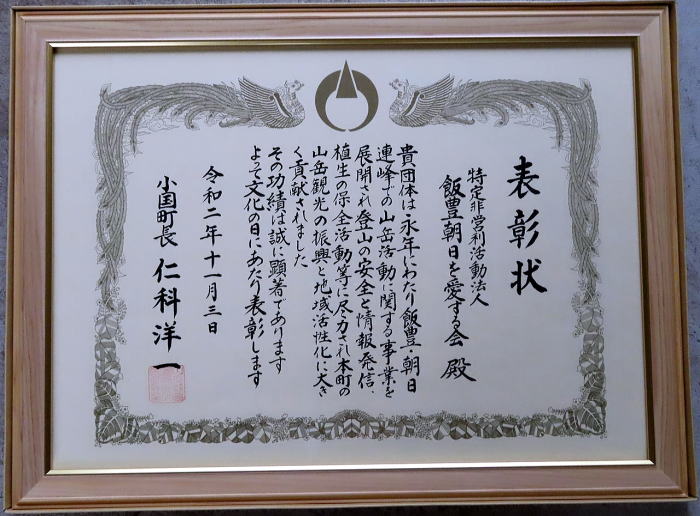 表彰状
特定非営利活動法人
飯豊朝日を愛する会 殿
貴団体は永年にわたり飯豊・朝日
連峰での山岳活動に関する事業を
展開され登山の安全と情報発信、
植生の保全活動等に尽力され本町の
山岳観光の振興と地域活性化に大き
く貢献されました
その功績は誠に顕著であります
よって文化の日にあたり表彰します
令和二年十一月三日
小国町長 仁科洋一